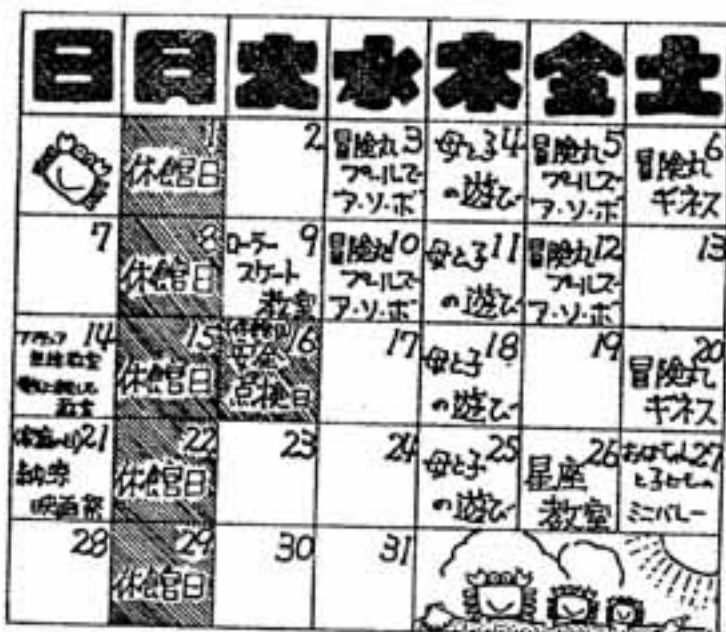 日 月 火 水 木 金 土
1
休館日
2
冒険丸 3
プールで
ア・ソ・ボ
母と子 4
の遊び
冒険丸 5
プールで
ア・ソ・ボ
6
冒険丸
ギネス
7
8
休館日
ローラー 9
スケート
教室
冒険丸 10
プールで
ア・ソ・ボ
母と子 11
の遊び
冒険丸 12
プールで
ア・ソ・ボ
13
14
教室
15
休館日
16
安全
点検日
17
母と子 18
の遊び
19
20
冒険丸
ギネス
21
納涼
映画祭
22
休館日
23
24
母と子 25
の遊び
26
星座
教室
27
と子どもの
ミニバレー
28
29
休館日
30
31